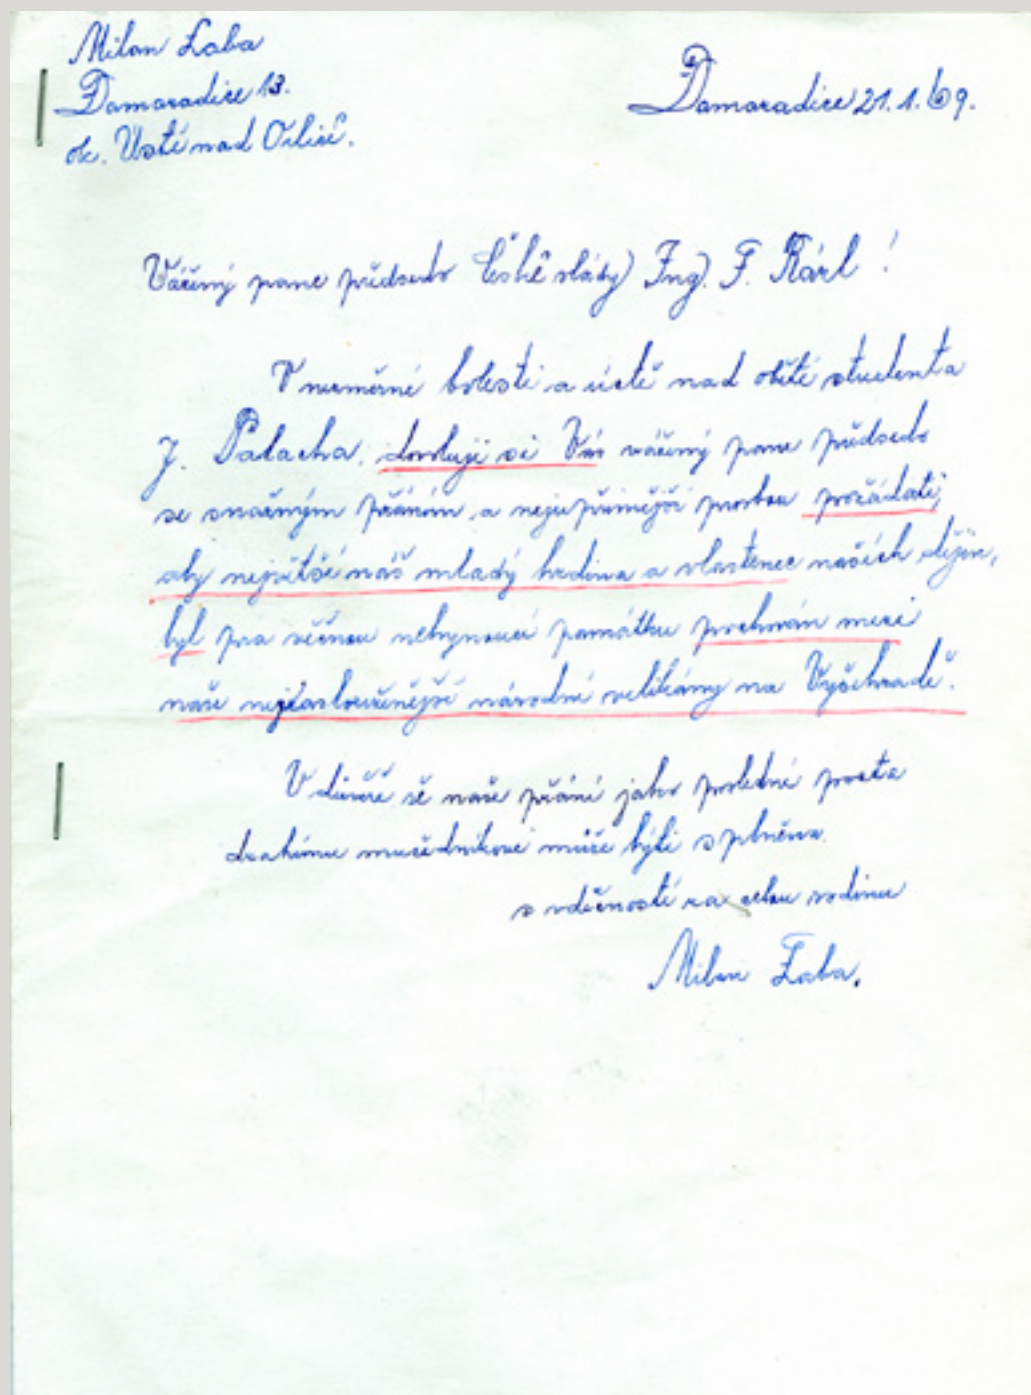 Milan Laba
Damaradice 13.
ok. Ústí nad Orlicí.
Damaradice 21.1.69.
Vážený pane předsedo České vlády) Ing). F. Kárl!
V nesmírné bolesti a úctě nad obětí studenta
J. Palacha, dovoluji si Vás vážený pane předsedo
se snažným přáním a nejupřímější prosbou požádati,
aby největší náš mladý hrdina a vlastenec našich dějin,
byl pro věčnou nehynoucí památku pochován mezi
naše nejzasloužilejší národní velikány na Vyšehradě.
V důvěře že naše přání jako poslední pocta
drahému mučedníkovi může býti splněna.
s vděčností za celou rodinu
Milan Laba.